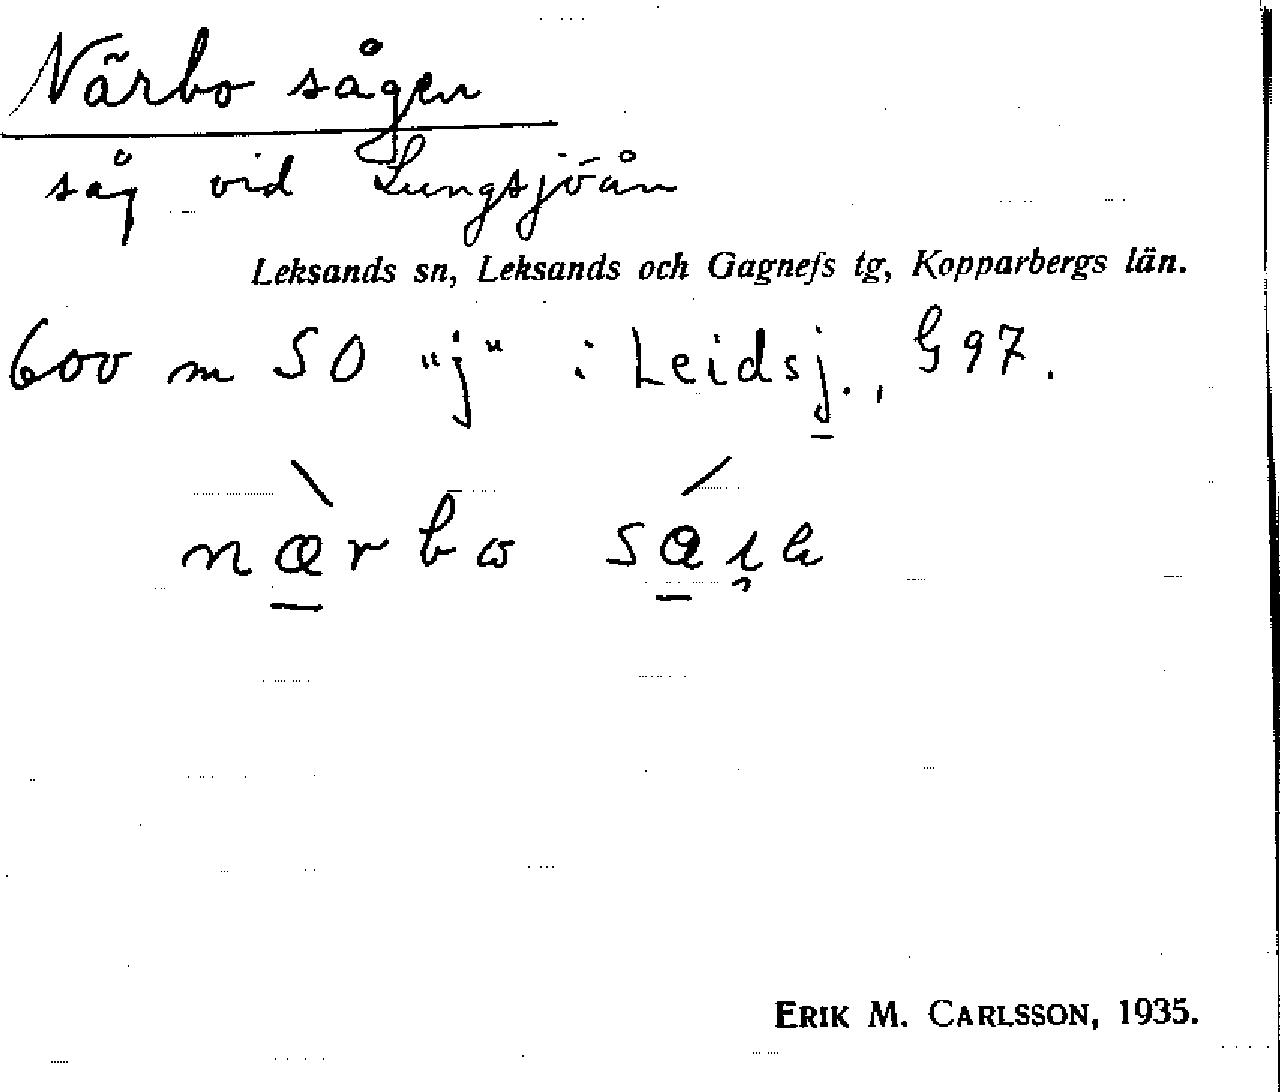 Närbo sågen
såg vid Lungsjöån
Leksands sn, Leksands och Gagnefs tg, Kopparbergs län.
600 m SO "j" i Leidsj., G 97.
nærbo
ERIK M. CARLSSON, 1935.